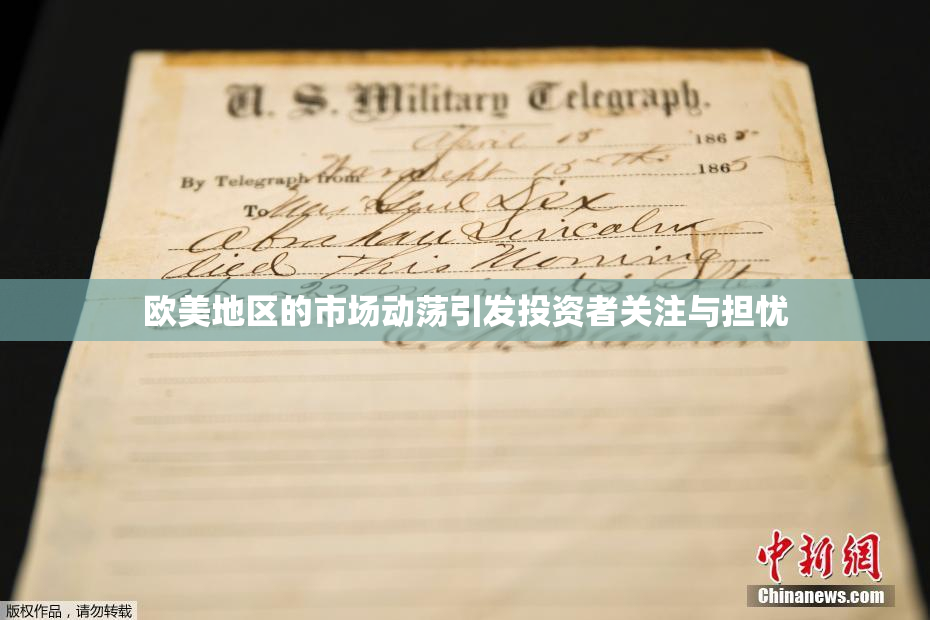 U. S. Military Telegraph.
April 15 1865
By Telegraph from War Dept 15th 1865
To Maj Genl Dix
Abraham Lincoln
died This Morning
22 minutes after
欧美地区的市场动荡引发投资者关注与担忧
E. M. Stanton
中新网
Chinanews.com
版权作品，请勿转载